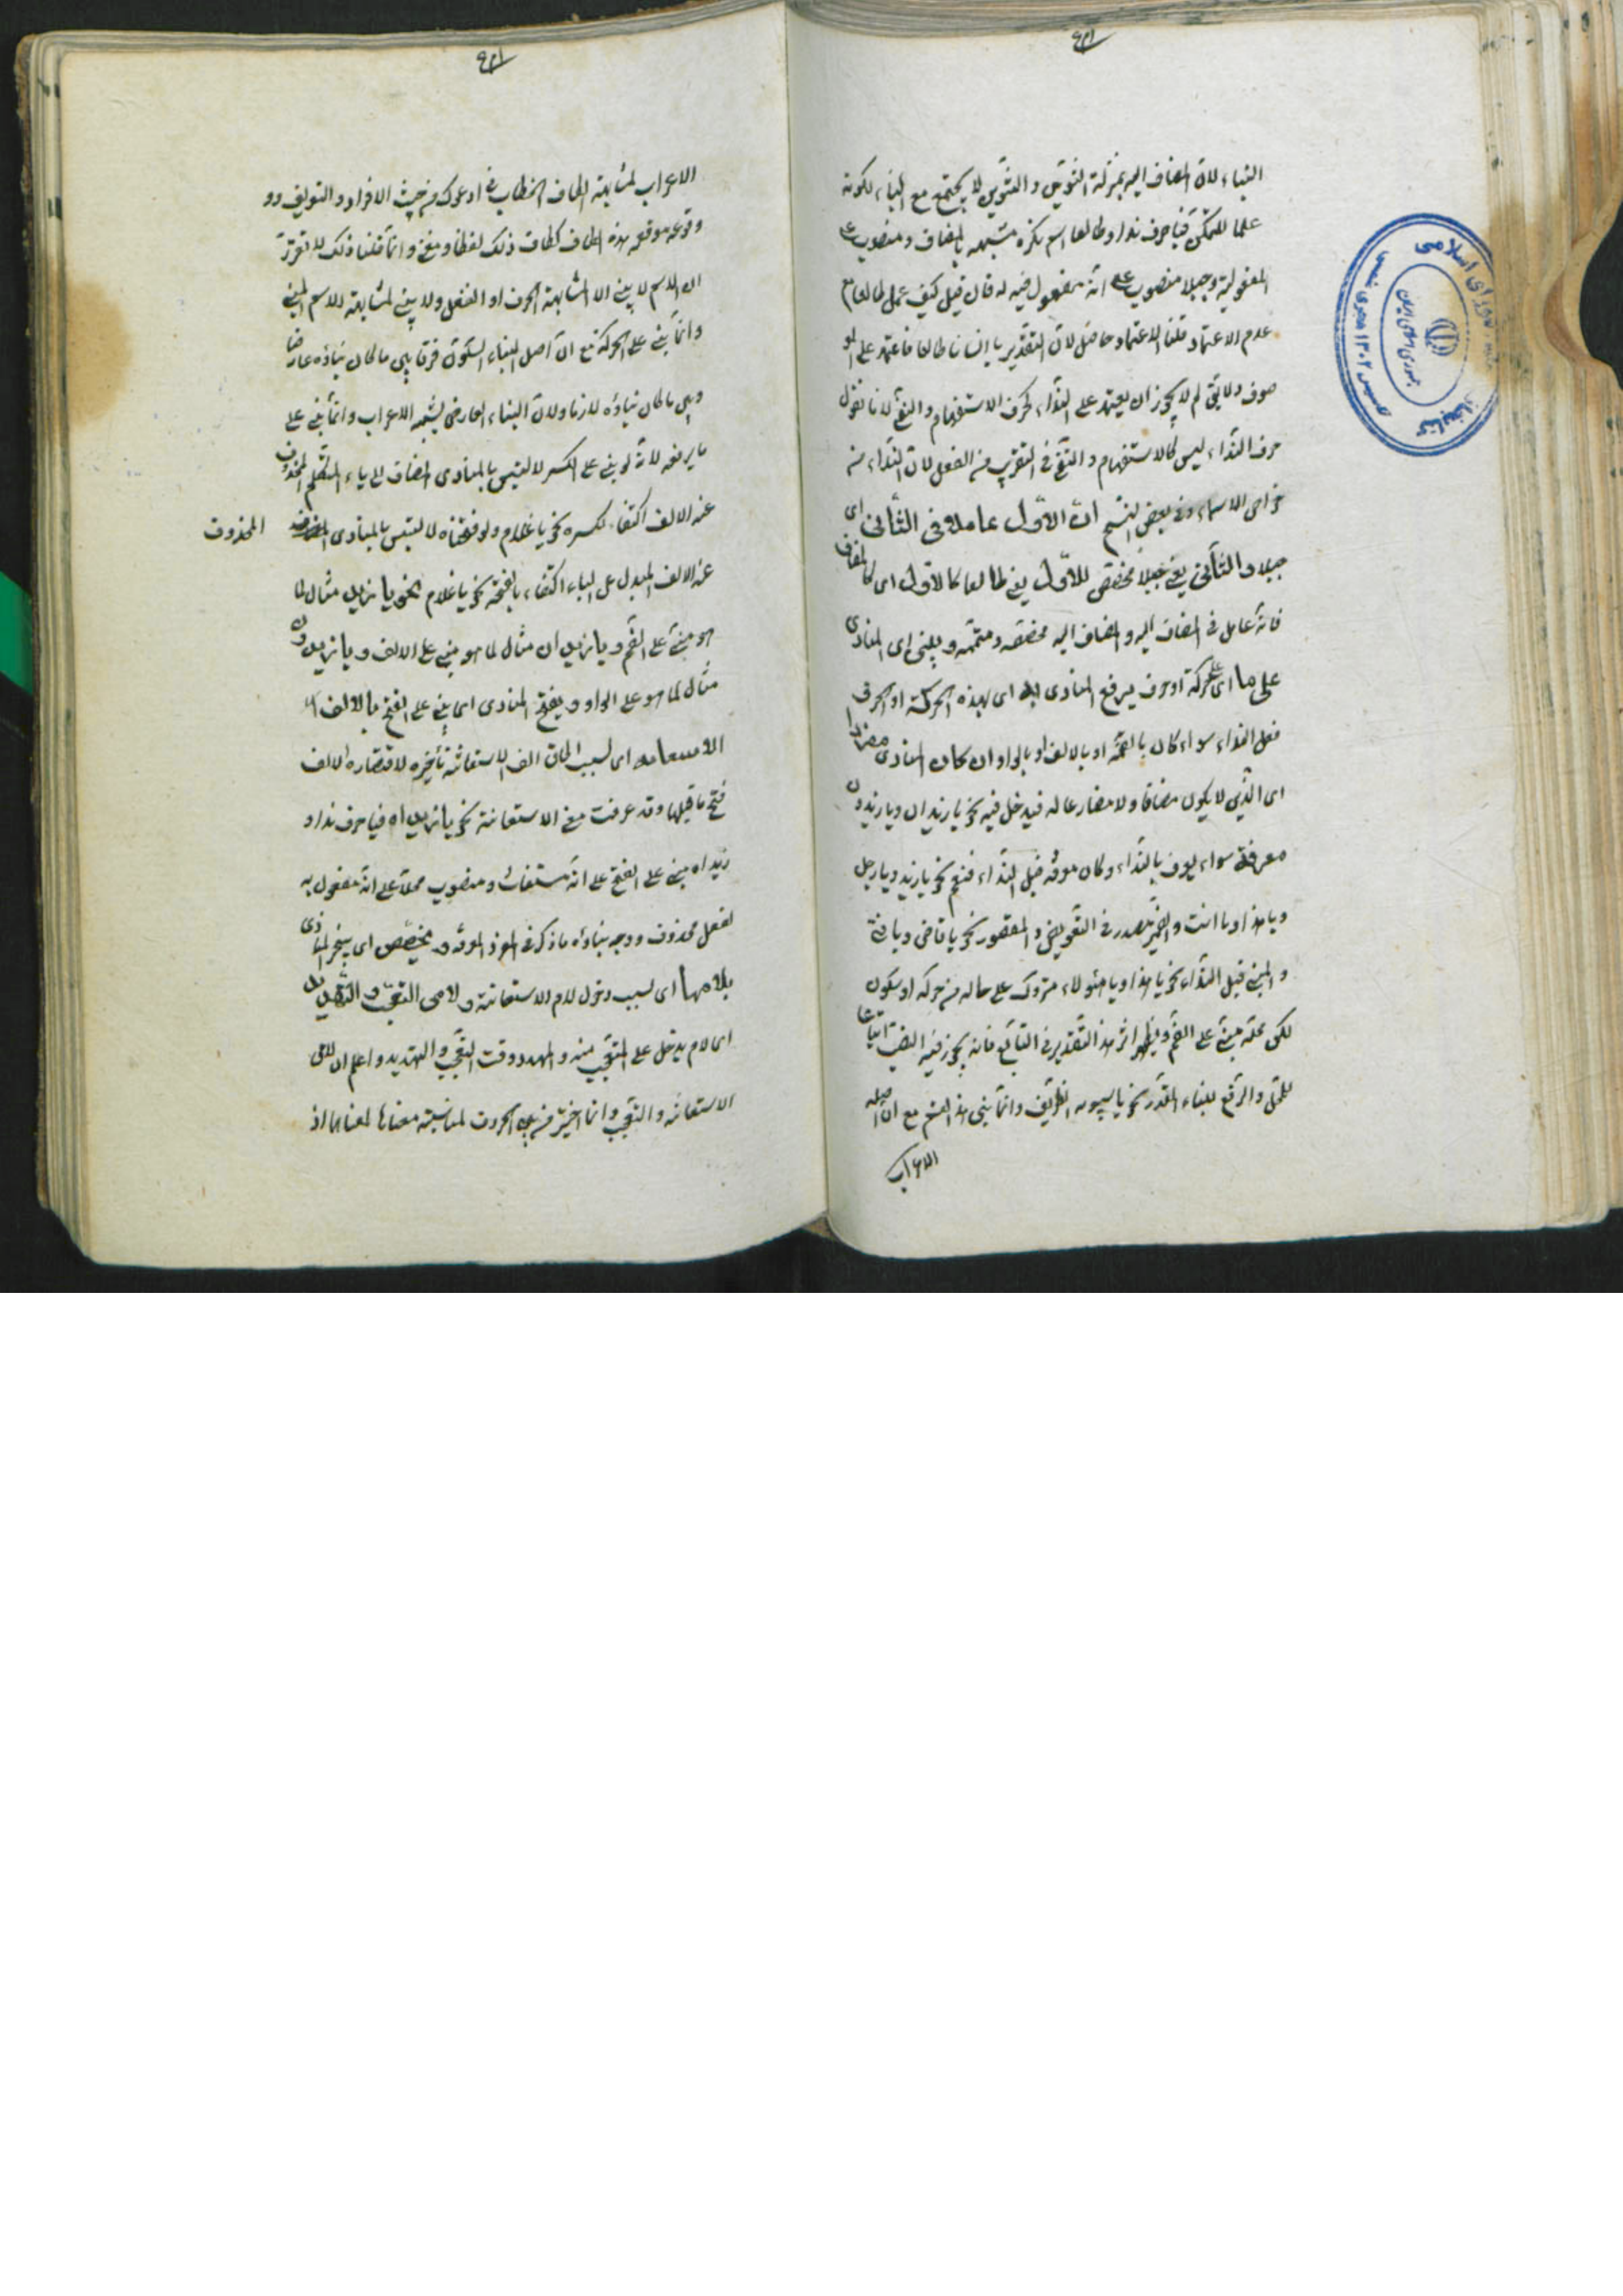 البناء لان المضاف اليه بمنزلة التنوين والتنوين لا يجتمع مع البناء لكونه
علما للتمكن فيا حرف نداء وطالعا اسم نكره مشبهه بالمضاف ومنصوب على
المفعولية وجبلا منصوب على انه مفعول فيه له فان قيل كيف عمل طالعا مع
عدم الاعتماد قلنا الاعتماد حاصل لان التقدير يا انسانا طالعا فاعتمد على المو
صوف ولا يق لم لا يجوز ان يعتمد على النداء كحرف الاستفهام والنفي لانا نقول
حرف النداء ليس كالاستفهام والنفي في التقريب من الفعل لان النداء من
خواص الاسماء وفي بعض النسخ ان الاول عامل في الثاني اى
جبلا والثاني يعني جبلا مخصص للاول يعني طالعا كالاول اى كالمضاف
فانه عامل في المضاف اليه والمضاف اليه مخصصه ومتممه ويبنى اى المنادى
على ما اى على حركة او حرف يرفع المنادى به اى بهذه الحركة او الحرف
قبل النداء سواء كان بالضمه او بالالف او بالواو ان كان المنادى مفردا
اى الذي لا يكون مضافا ولا مضارعا له فيدخل فيه نحو يا زيدان ويا زيدون
معرفة سواء يعرف بالنداء وكان معرفه قبل النداء فنعم نحو يا زيد ويا رجل
ويا هذا ويا انت والضمير مقدر في المنقوص والمقصور نحو يا قاضى ويا فتى
والمبني قبل النداء نحو يا هذا ويا هؤلاء متروك على حاله من حركه او سكون
لكن محله مبني على الضم ويظهر اثر هذا التقدير في التابع فانه يجوز فيه النصب اتباعا
للمحل والرفع للبناء المقدر نحو يا سيبويه الظريف وانما بني هذا القسم مع ان اصله
الاعراب
الاعراب لمشابهته الكاف الخطاب في ادعوك من حيث الافراد والتعريف وو
وقوعه موقعه وهذه الكاف كالكاف ذلك لفظا ومعنى وانما قلنا ذلك لما تقرر
ان الاسم لا يبنى الا لمشابهته الحرف او الفعل ولا يبنى لمشابهته للاسم المبني
وانما بني على الحركة مع ان اصل البناء السكون فرقا بين ما كان بناؤه عارضا
وبين ما كان بناؤه لازما ولان البناء العارضى يشبه الاعراب وانما بني على
ما يرفع به لانه لو بني على الكسر لالتبس بالمنادى المضاف الى ياء المتكلم المحذوف
عنه الالف اكتفاء لكسره نحو يا غلام ولو فتحناه لالتبس بالمنادى المحذوف
عنه الالف المبدل عن الياء اكتفاء بالفتحة نحو يا غلام نحو يا زيد مثال لما
هو مبني على الضم ويا زيدان مثال لما هو مبني على الالف ويا زيدون
مثال لما هو على الواو ويفتح المنادى اى يبنى على الفتح بالالف
الاستغاثه اى بسبب الحاق الف الاستغاثه باخره لاقتضاء الالف
فتح ما قبلها وقد عرفت معنى الاستغاثة نحو يا زيداه فيا حرف نداء و
زيداه مبني على الفتح على انه مستغاث ومنصوب محلا على انه مفعول به
لفعل محذوف ووجه بناؤه ما ذكر في المفرد المعرفه ويخفض اى يجر المنادى
بلامها اى بسبب دخول لام الاستغاثة ولامى التعجب والتهديد
اى لام يدخل على المتعجب منه والمهدد وقت التعجب والتهديد واعلم ان لامى
الاستغاثه والتعجب انما اختير من بين الحروف لمناسبة معناها لمعناهما اذ